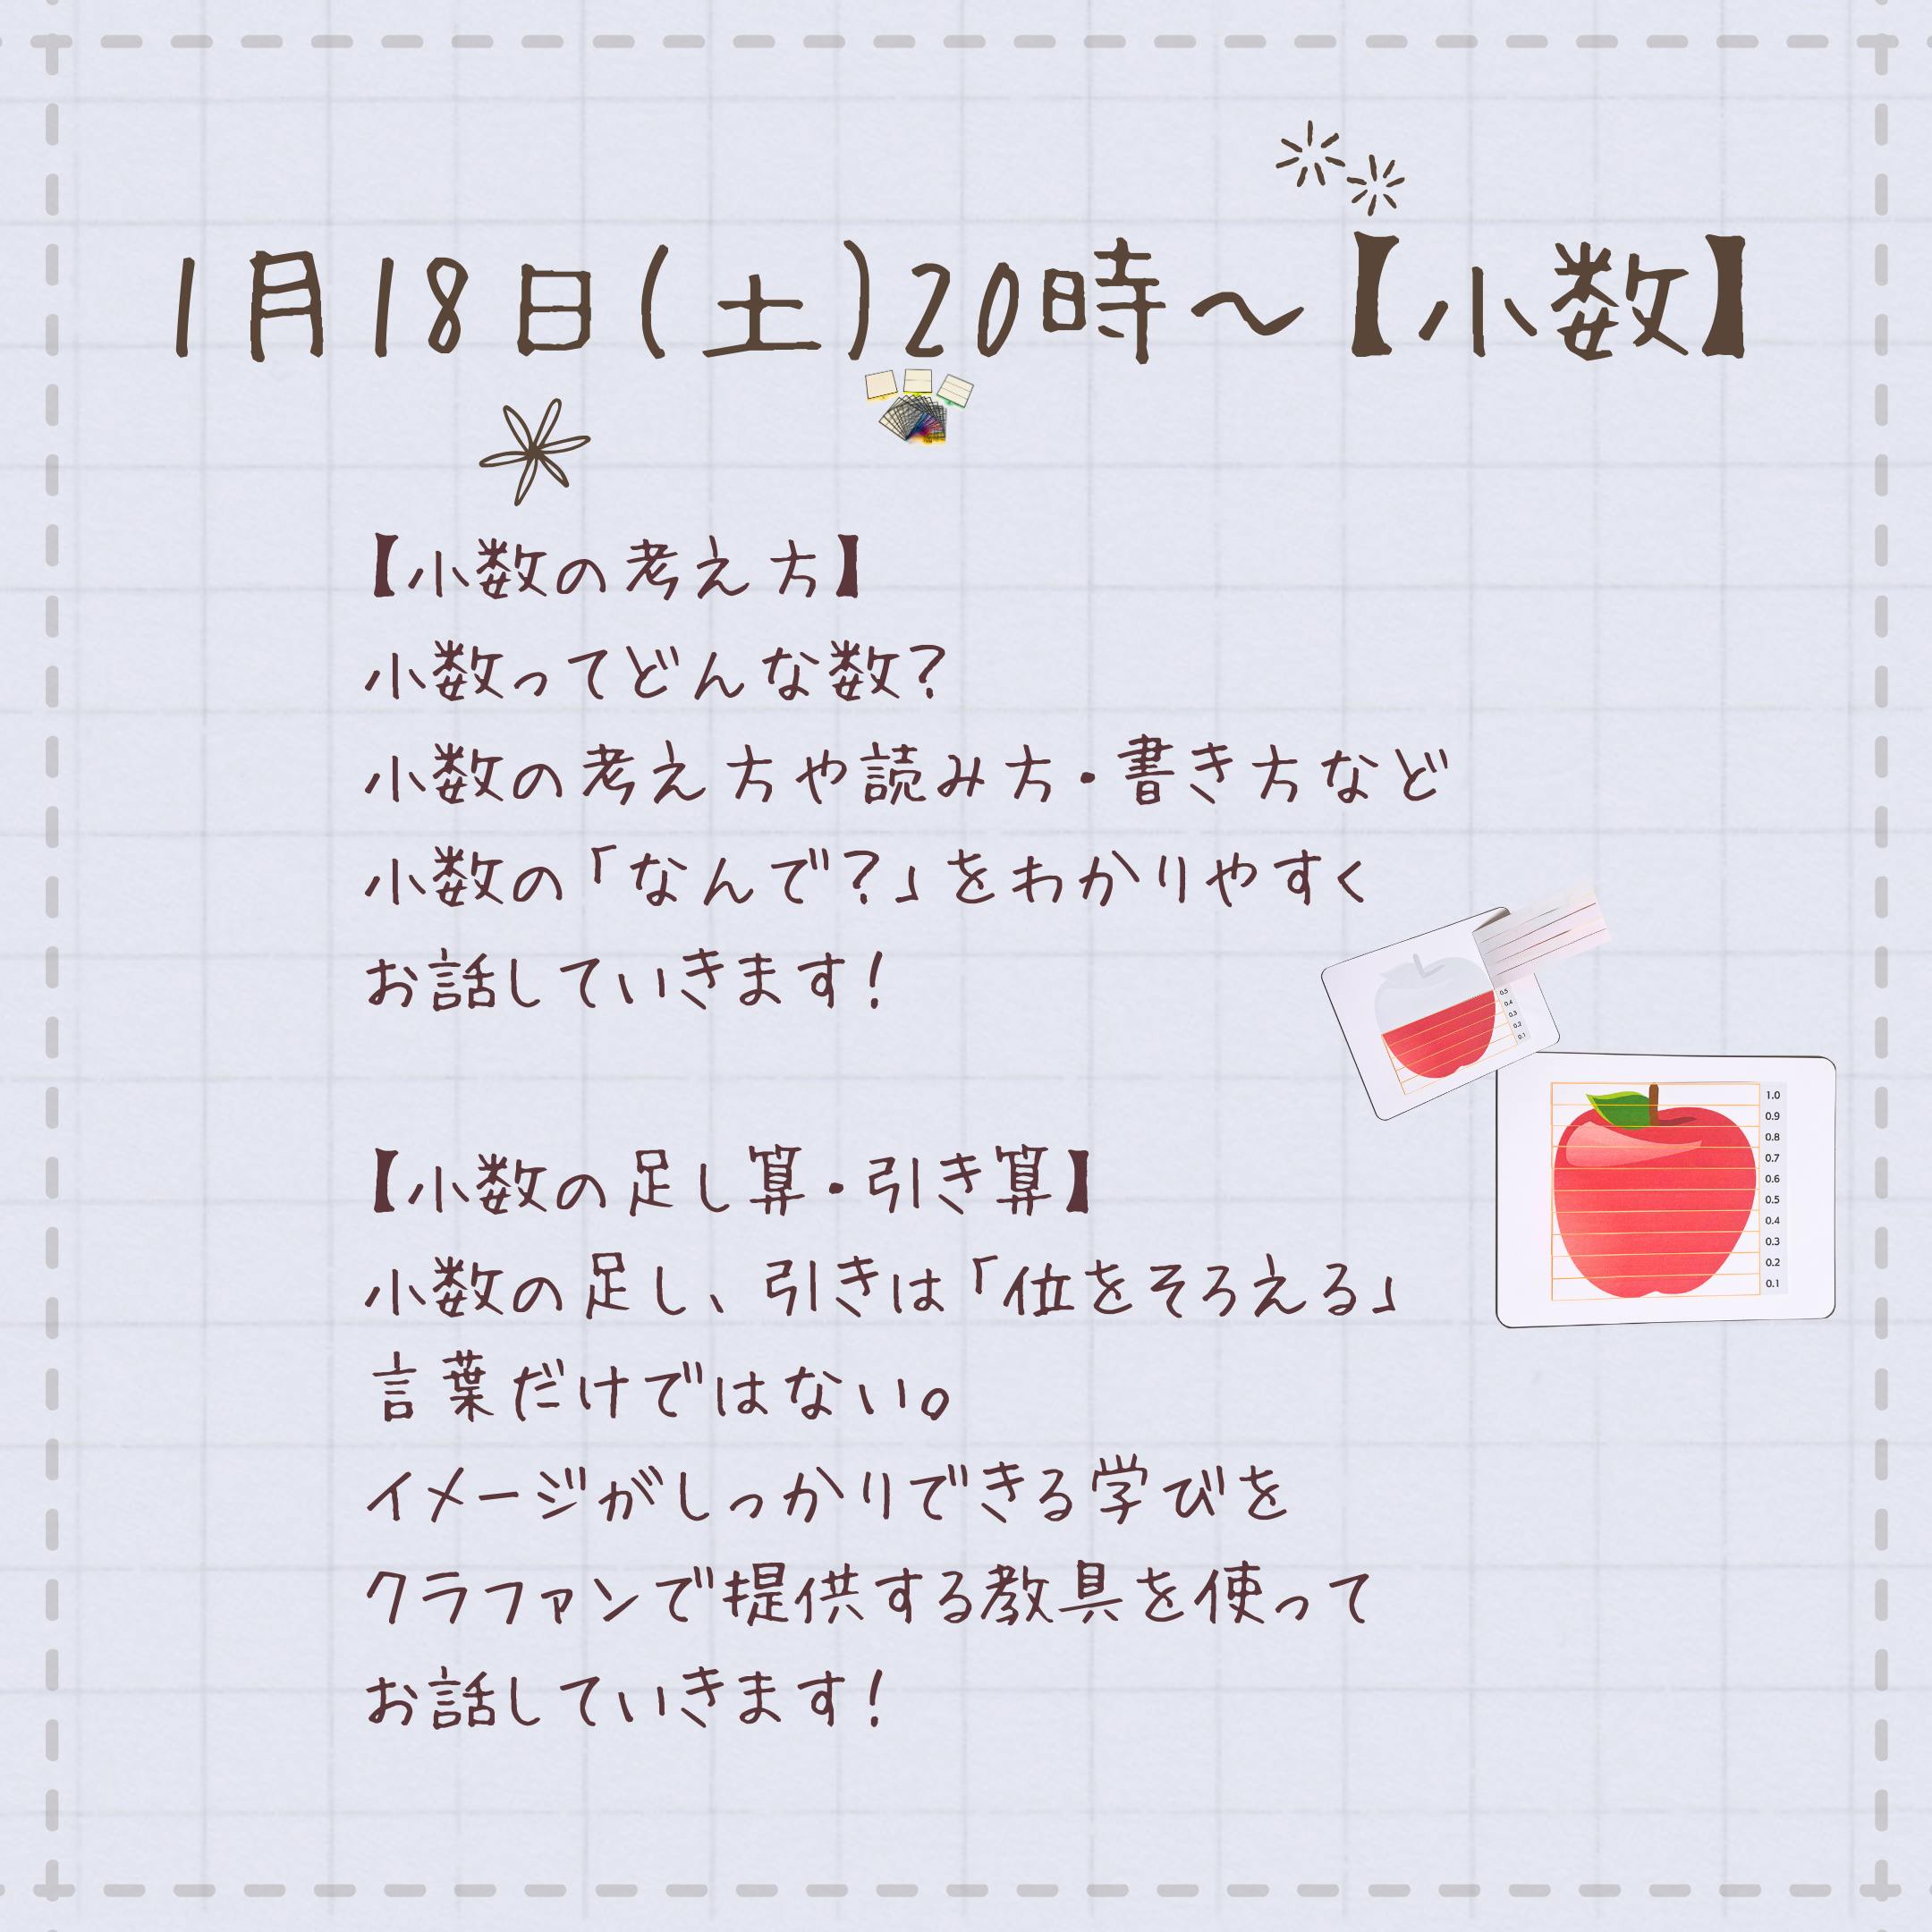 1月18日(土)20時～【小数】
【小数の考え方】
小数ってどんな数?
小数の考え方や読み方・書き方など
小数の「なんで?」をわかりやすく
お話していきます!
0.5
0.4
0.3
0.2
0.1
1.0
0.9
0.8
0.7
0.6
0.5
0.4
0.3
0.2
0.1
【小数の足し算・引き算】
小数の足し、引きは「位をそろえる」
言葉だけではない。
イメージがしっかりできる学びを
クラファンで提供する教具を使って
お話していきます!